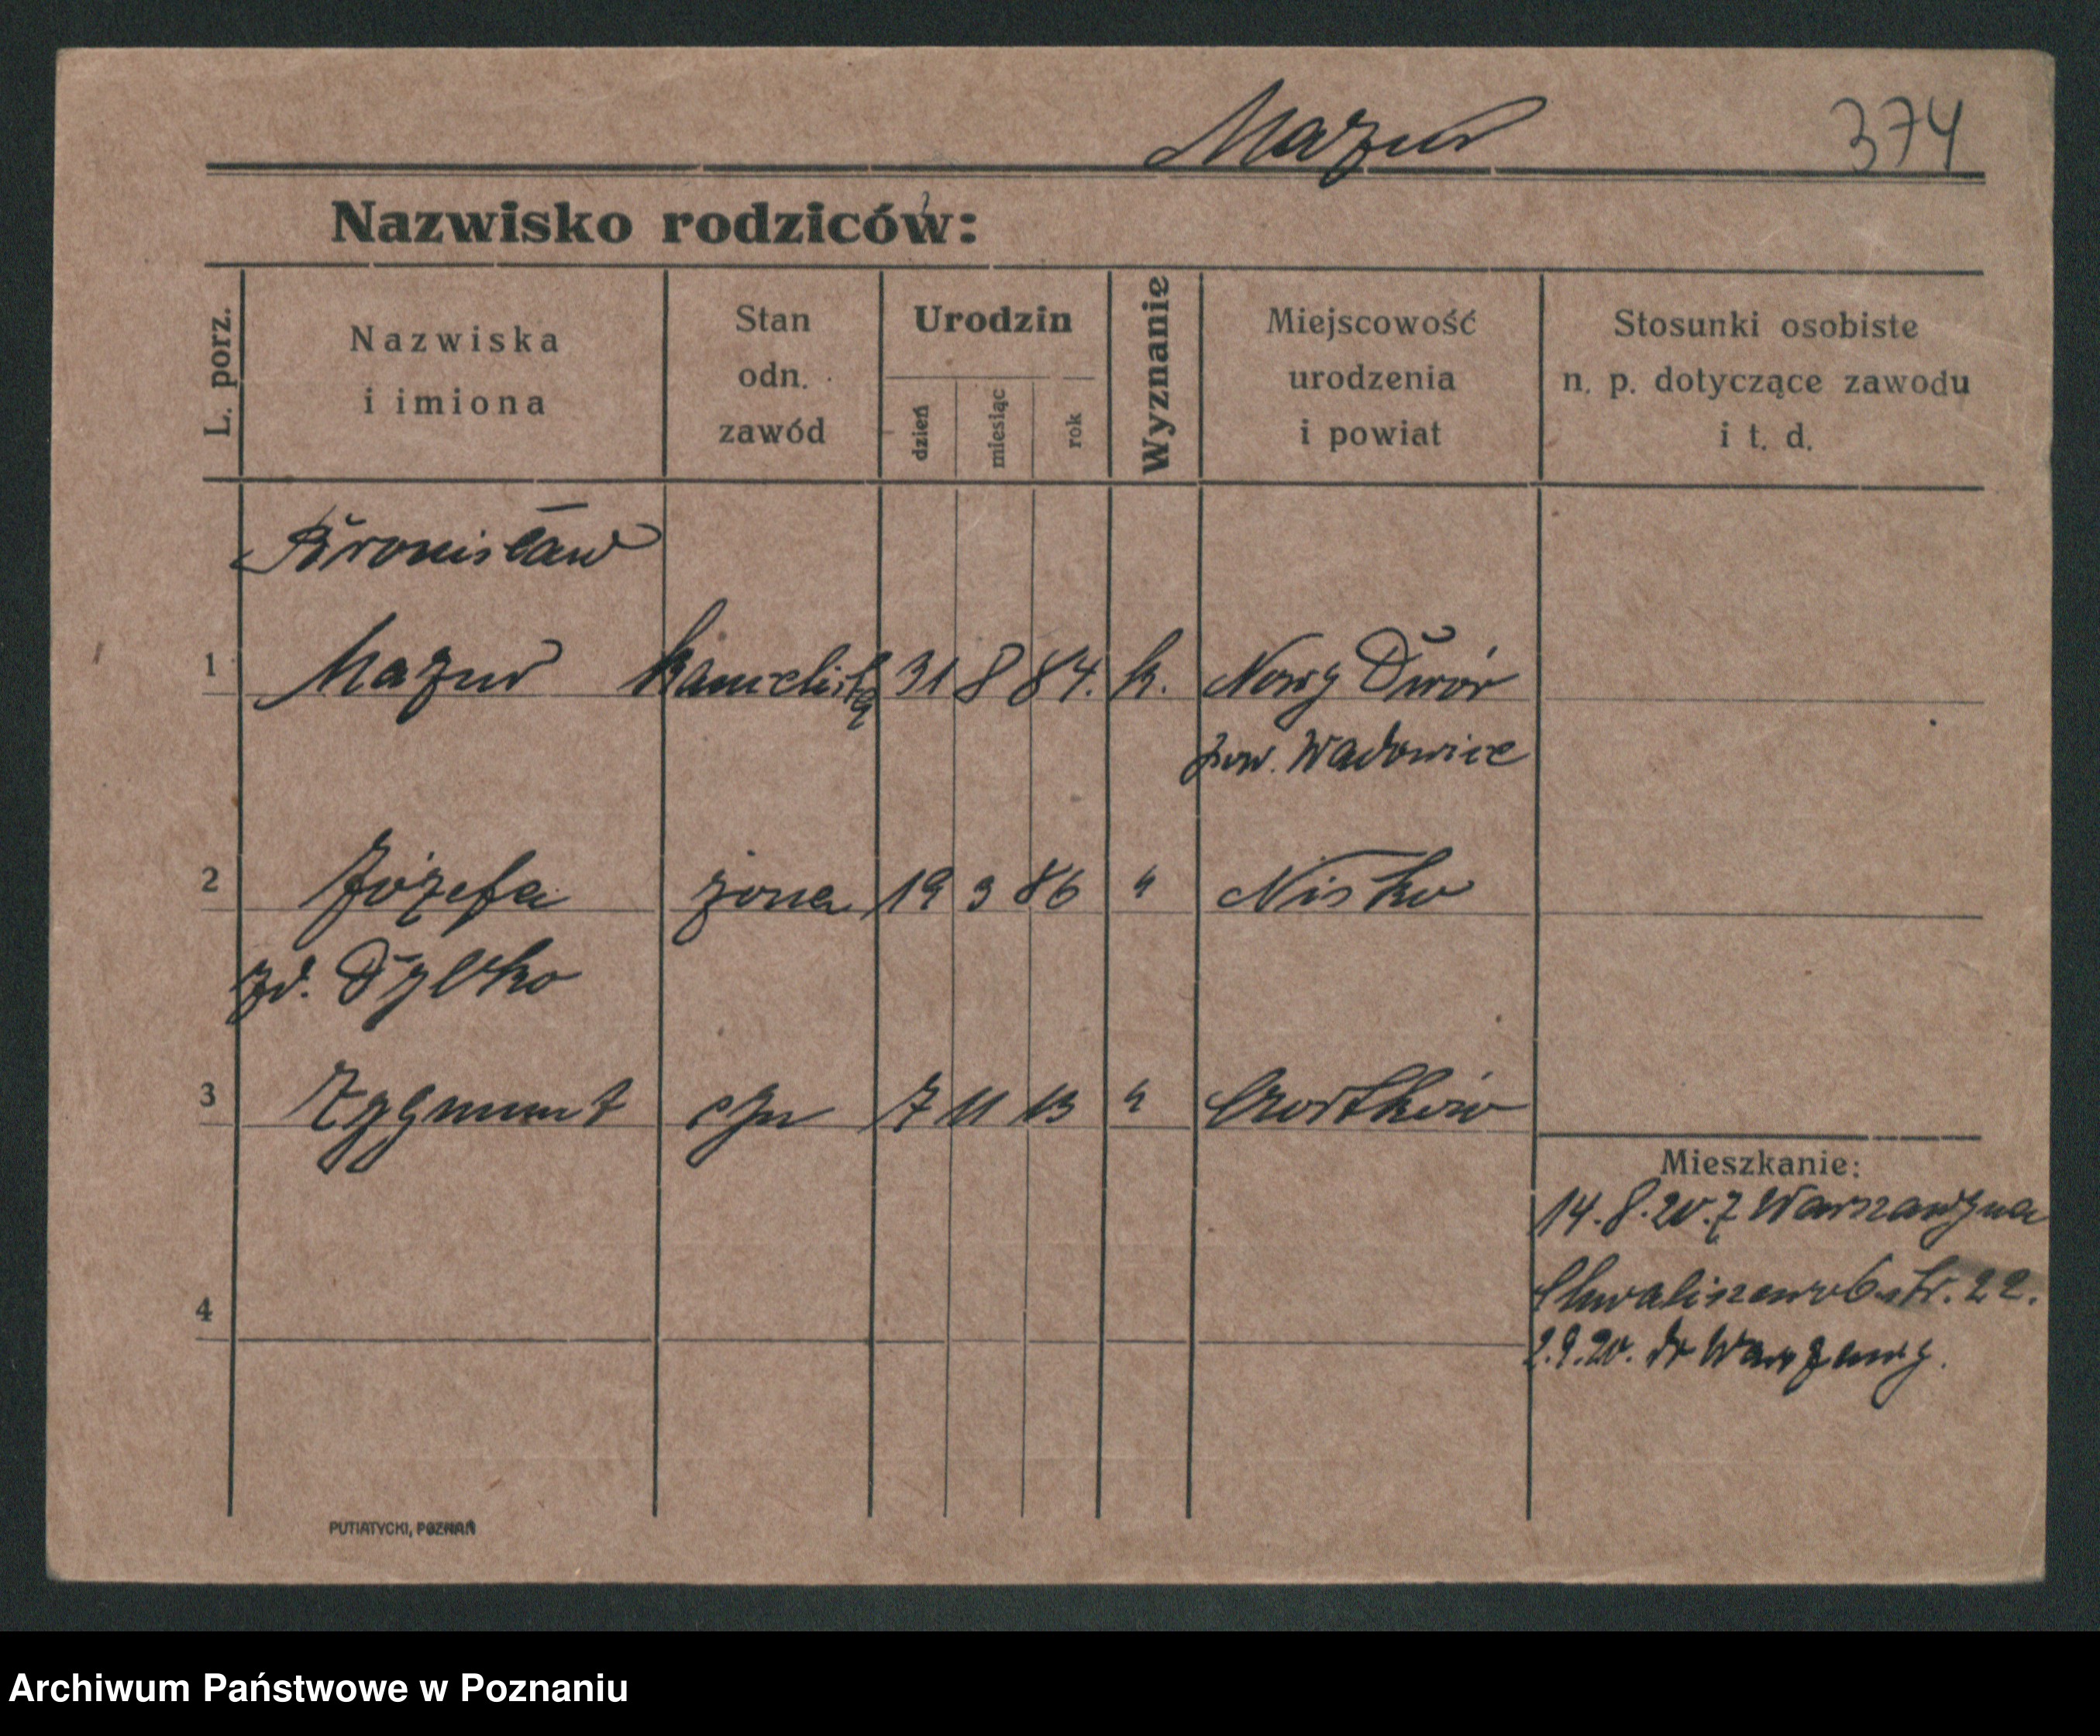 Mazur 374
Nazwisko rodziców:
L. porz.
Nazwiska
i imiona
Stan
odn.
zawód
Urodzin
dzień
miesiąc
rok
Wyznanie
Miejscowość
urodzenia
i powiat
Stosunki osobiste
n. p. dotyczące zawodu
i t. d.
Bronisław
1 Mazur kancelista 31 8 84. k. Nowy Dwór
pow. Wadowice
2 Józefa żona 19 3 86 " Nisko
zd. Dylko
3 Zygmunt syn 7 11 13 " Czortków
Mieszkanie:
14. 8. 20. z Warszawy na
Chwaliszewo 22.
4
2.9.20. do Warszawy.
PUTIATYCKI, POZNAŃ
Archiwum Państwowe w Poznaniu